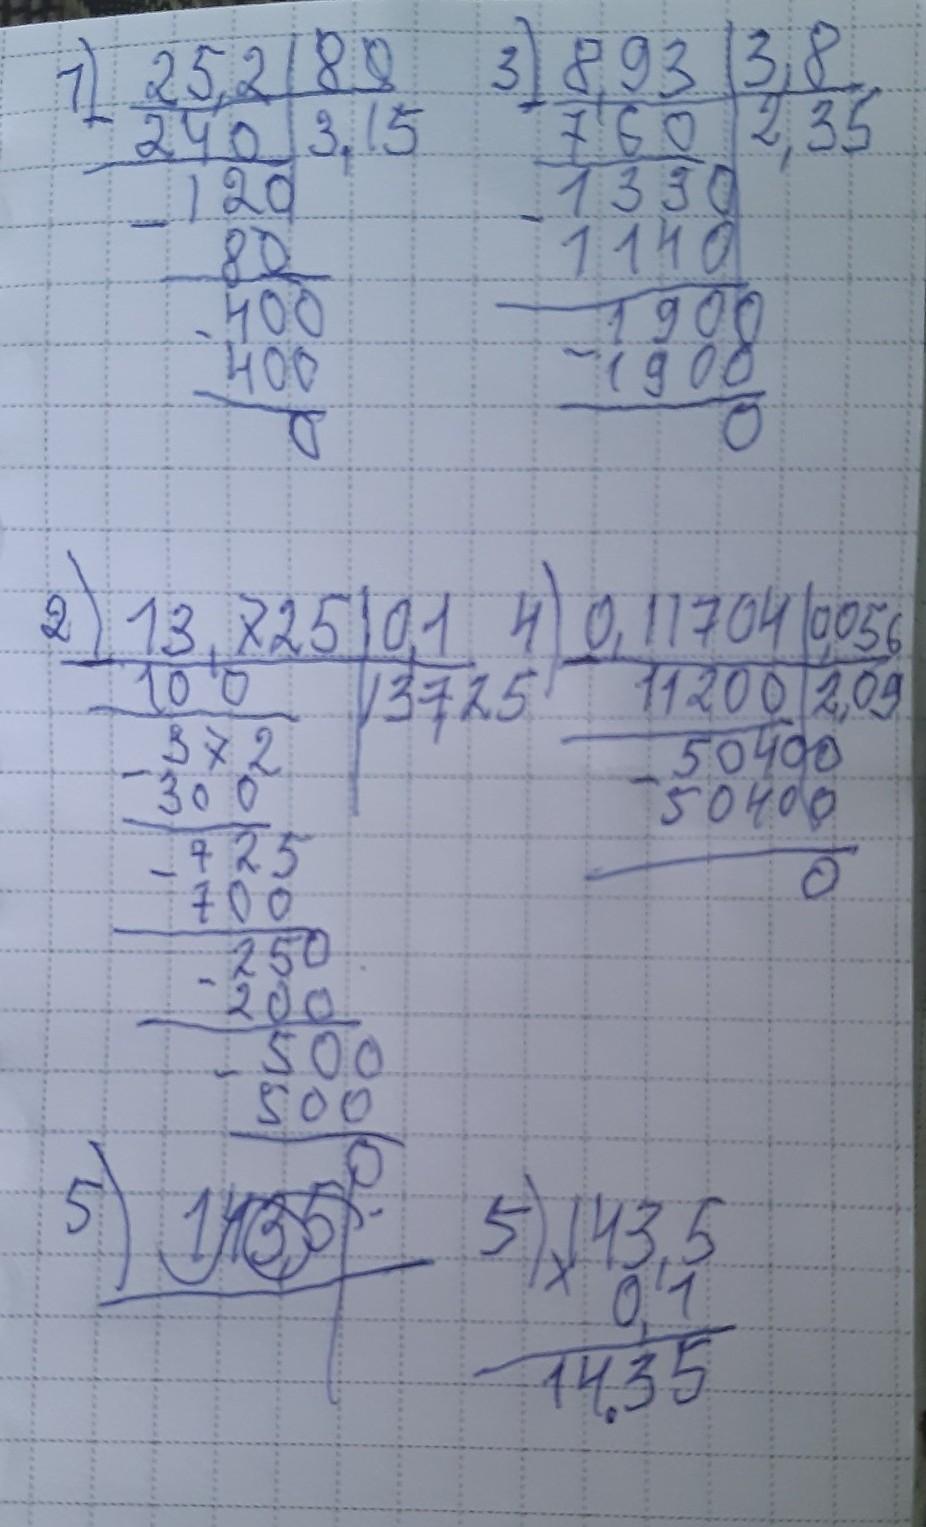 1) 25,2 | 80
- 240 | 3,15
- 120
80
- 400
400
0
3) 8,93 | 3,8
- 760 | 2,35
- 1330
1140
1900
- 1900
0
2) 13,725 | 0,1
100 | 13725
- 372
300
- 725
700
- 250
200
- 500
500
0
4) 0,11704 | 0,056
11200 | 2,09
- 50400
50400
0
5) 143,5
5) 143,5
x 0,1
14.35